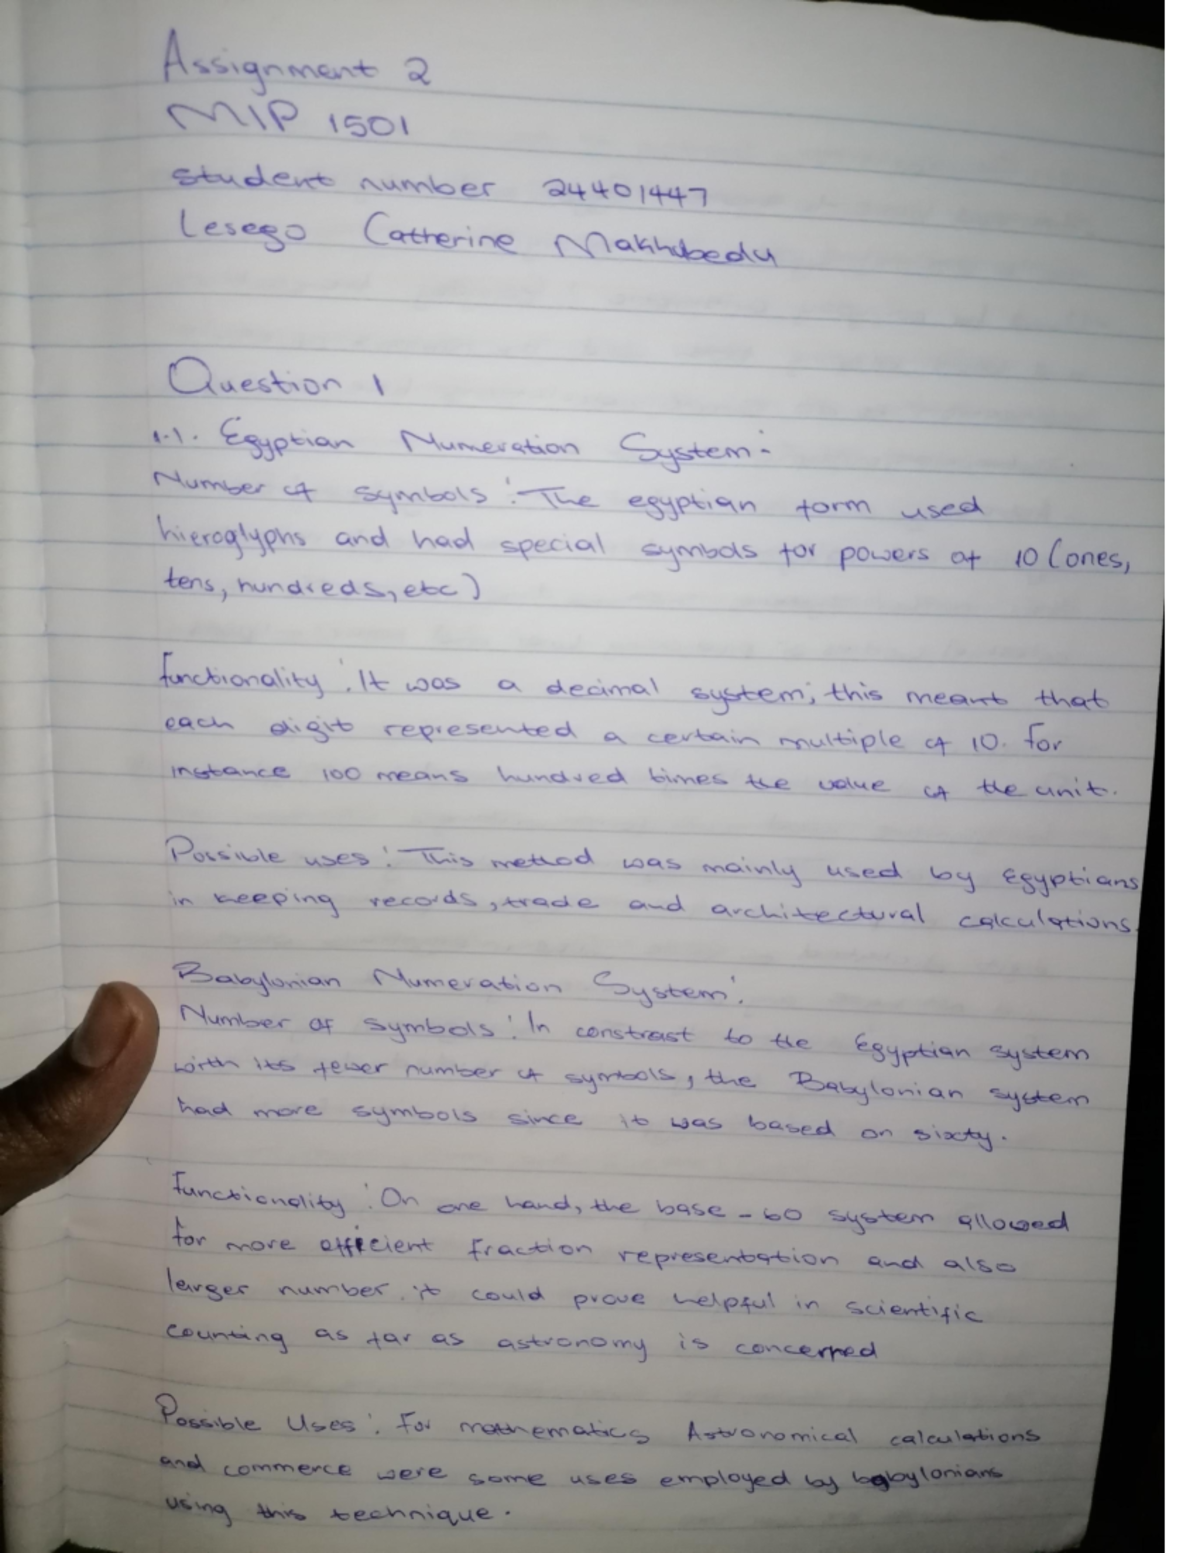 Assignment 2
MIP 1501
student number 24401447
Lesego Catherine Makhubedu
Question 1
1.1. Egyptian Numeration System:
Number of symbols: The egyptian form used
hieroglyphs and had special symbols for powers of 10 (ones,
tens, hundreds, etc)
functionality: It was a decimal system; this meant that
each digit represented a certain multiple of 10. for
instance 100 means hundred times the value of the unit.
Possible uses: This method was mainly used by Egyptians
in keeping records, trade and architectural calculations.
Babylonian Numeration System:
Number of symbols: In constrast to the Egyptian system
with its fewer number of symbols, the Babylonian system
had more symbols since it was based on sixty.
functionality: On one hand, the base-60 system allowed
for more efficient fraction representation and also
larger number. it could prove helpful in scientific
counting as far as astronomy is concerned
Possible Uses: for mathematics Astronomical calculations
and commerce were some uses employed by babylonians
using this technique.